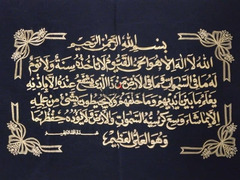 بسم الله الرحمن الرحيم
الله لا اله الا هو الحي القيوم لا تأخذه سنة ولا نوم
له ما في السموات وما في الأرض من ذا الذي يشفع عنده الا باذنه
يعلم ما بين أيديهم وما خلفهم ولا يحيطون بشئ من علمه
الا بما شاء وسع كرسيه السموات والأرض ولا يؤده حفظهما
وهو العلي العظيم